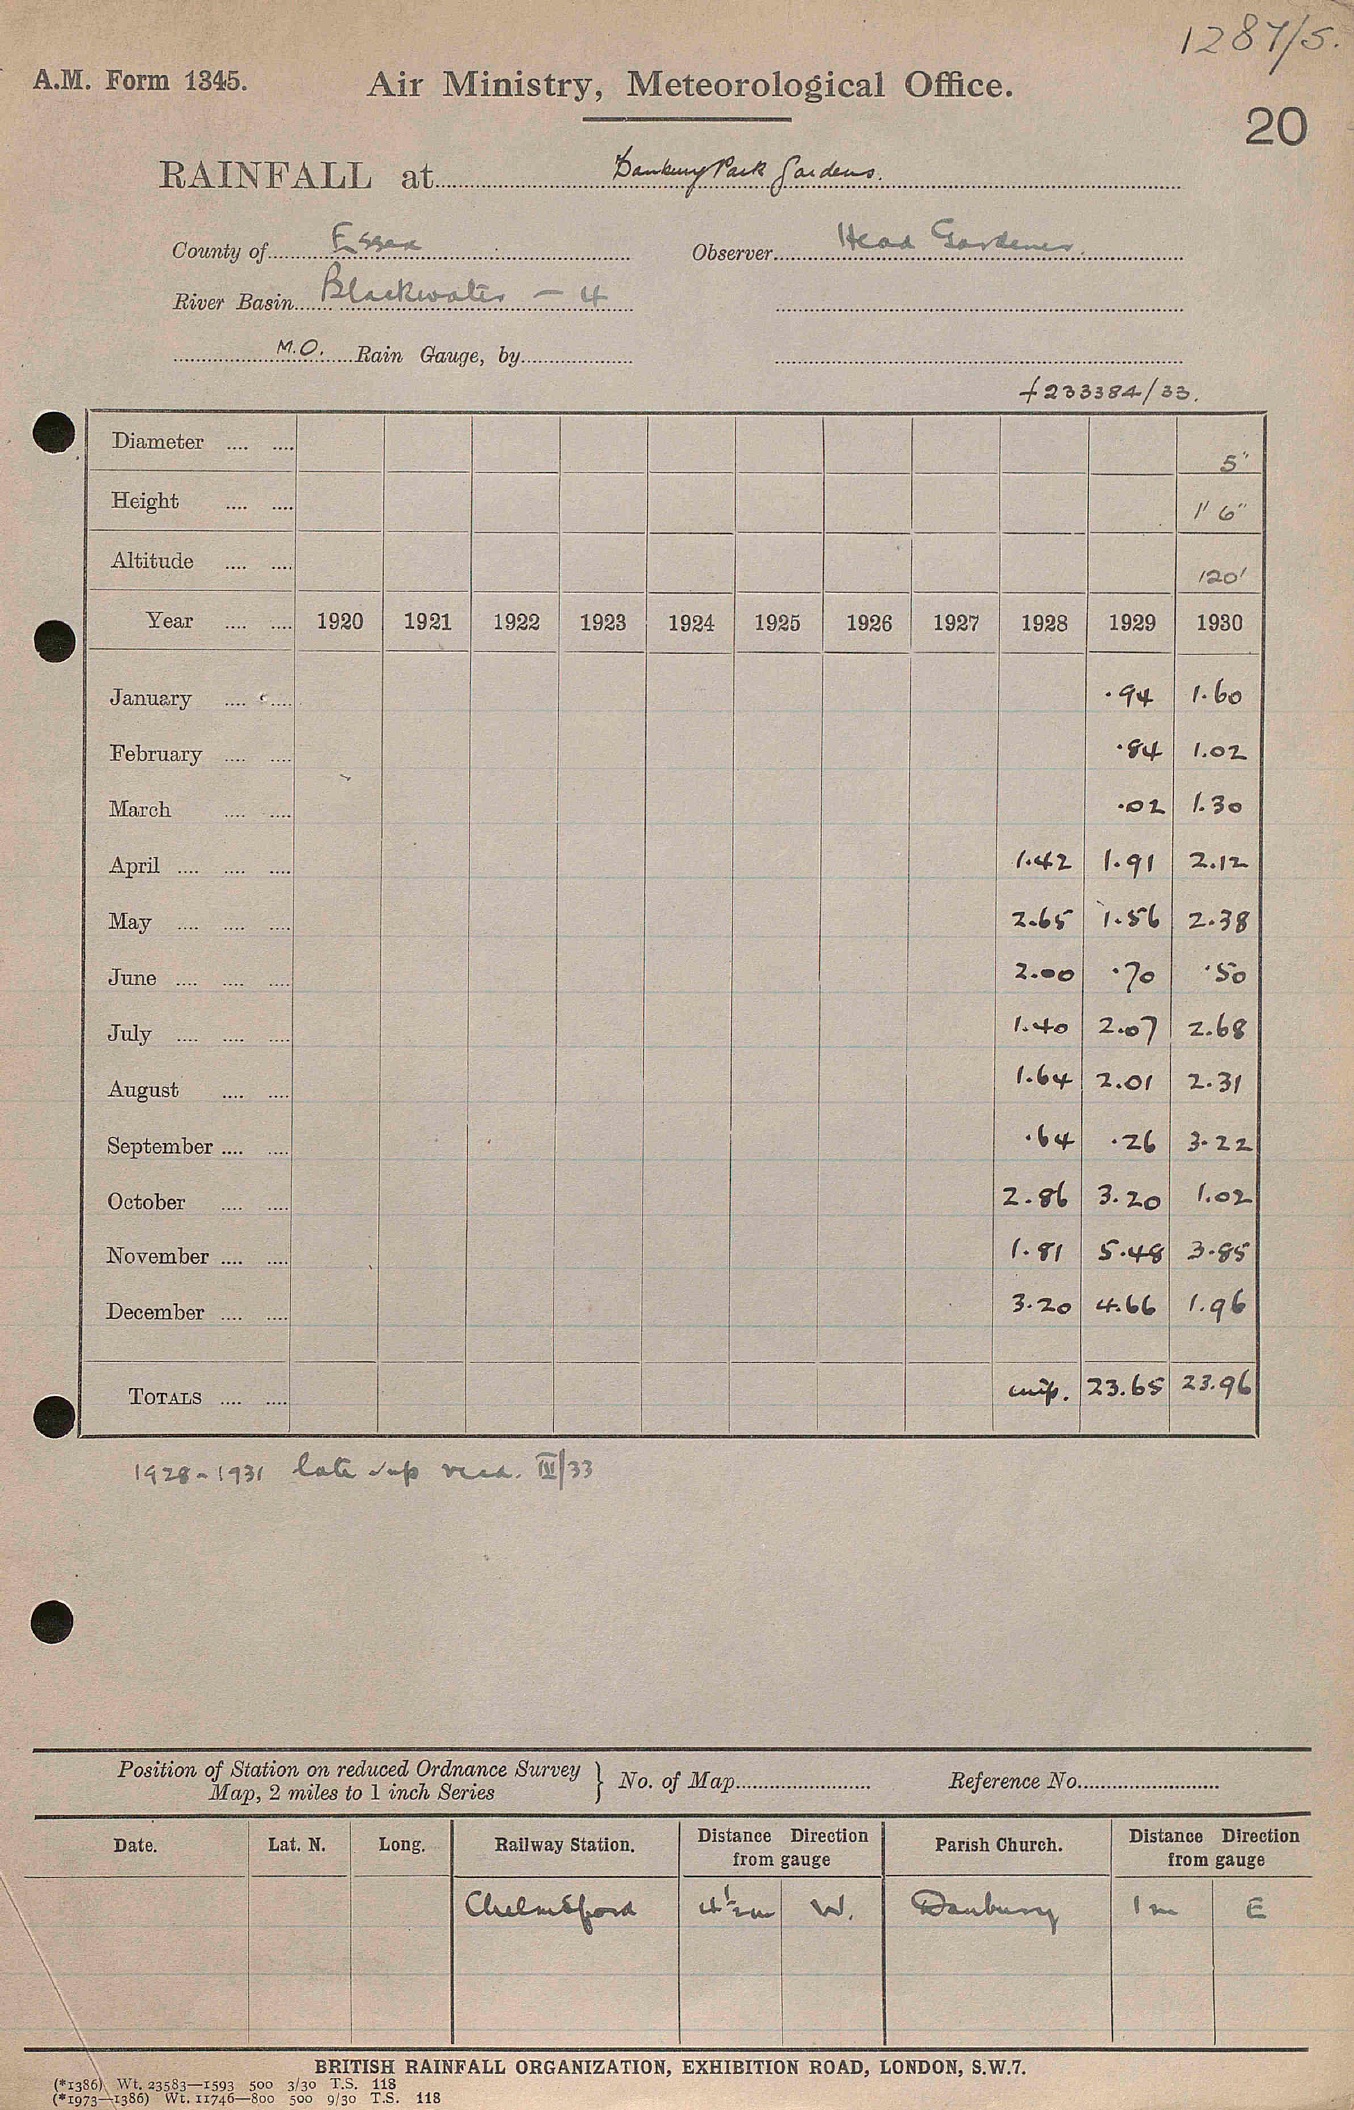 1287/5.
A.M. Form 1345. Air Ministry, Meteorological Office.
20
RAINFALL at Danbury Park Gardens.
County of Essex Observer Head Gardener.
River Basin Blackwater — 4
M.O. Rain Gauge, by
+233384/33.
Diameter .... .... 5"
Height .... .... 1' 6"
Altitude .... .... 120'
Year .... .... 1920 1921 1922 1923 1924 1925 1926 1927 1928 1929 1930
January .... .... .94 1.60
February .... .... .84 1.02
March .... .... .02 1.30
April .... .... .... 1.42 1.91 2.12
May .... .... .... 2.65 1.56 2.38
June .... .... .... 2.00 .70 .50
July .... .... .... 1.40 2.07 2.68
August .... .... 1.64 2.01 2.31
September .... .... .64 .26 3.22
October .... .... 2.86 3.20 1.02
November .... .... 1.81 5.48 3.85
December .... .... 3.20 4.66 1.96
TOTALS .... .... 23.65 23.96
1928-1931 late III/33
Position of Station on reduced Ordnance Survey
Map, 2 miles to 1 inch Series } No. of Map Reference No.
Date. Lat. N. Long. Railway Station. Distance Direction from gauge Parish Church. Distance Direction from gauge
Chelmsford 4½m W. Danbury 1m E
BRITISH RAINFALL ORGANIZATION, EXHIBITION ROAD, LONDON, S.W.7.
(*1386) Wt. 23583—1593 500 3/30 T.S. 118
(*1973—1386) Wt. 11746—800 500 9/30 T.S. 118